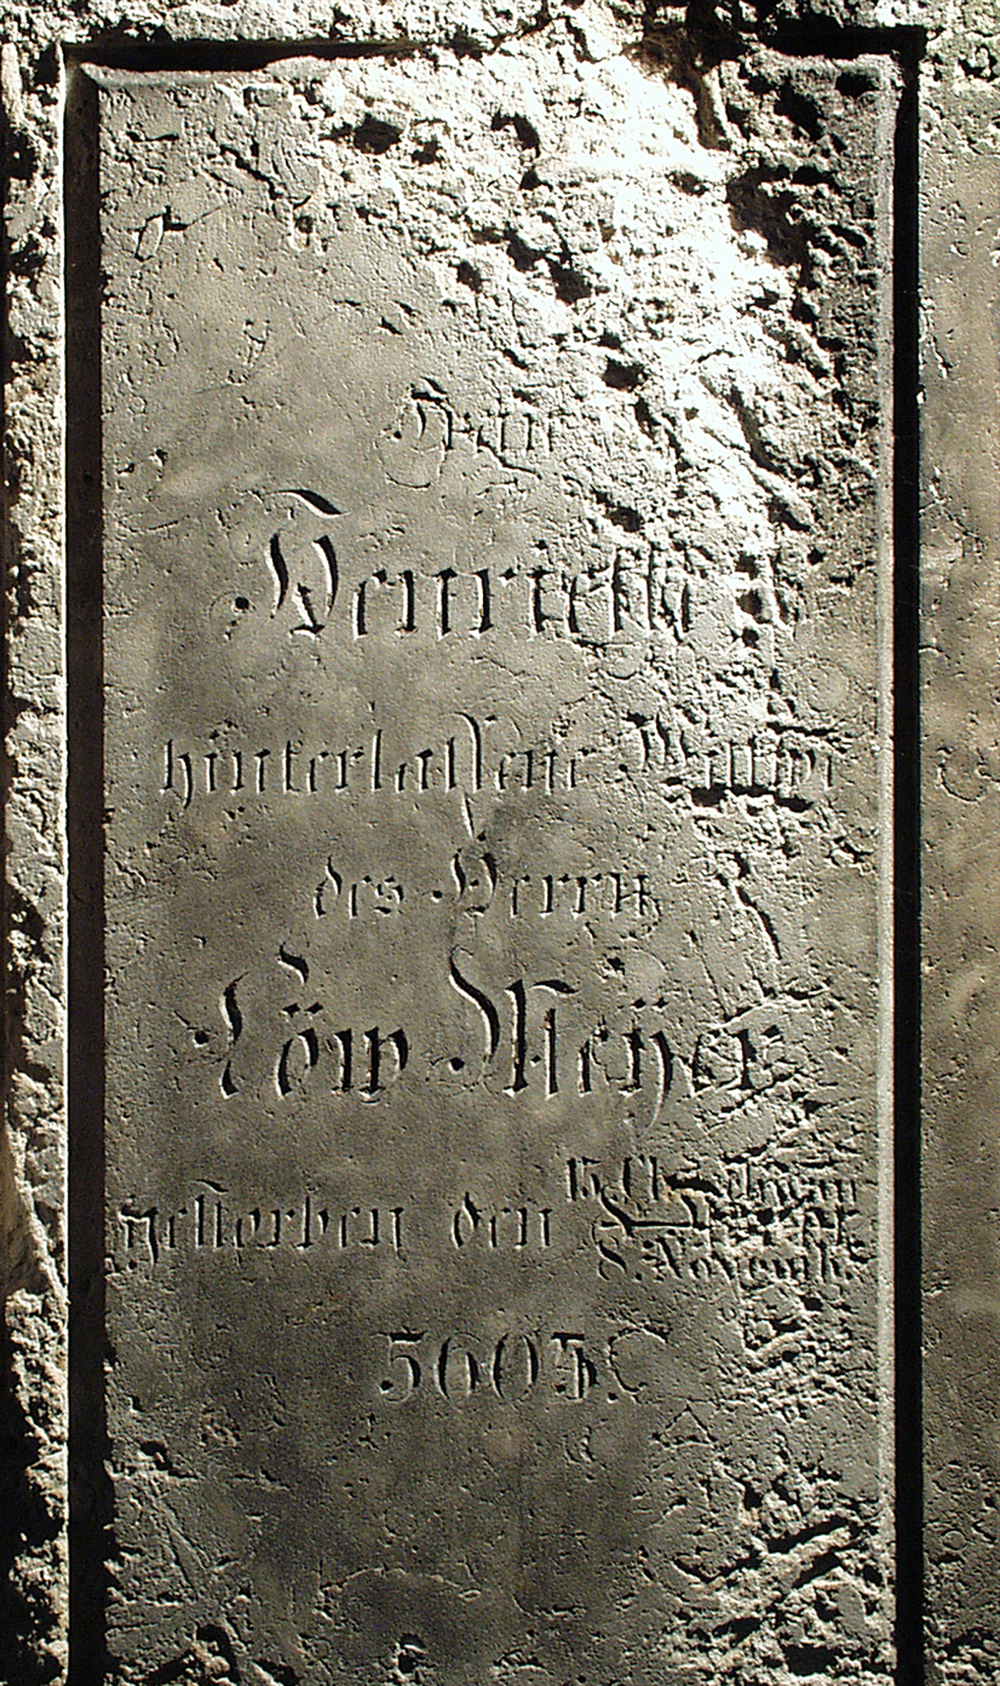 Frau
Henriette
hinterlassene Wittwe
des Herrn
Löw Meÿer
gestorben den 15.
8. Novemb.
5604.